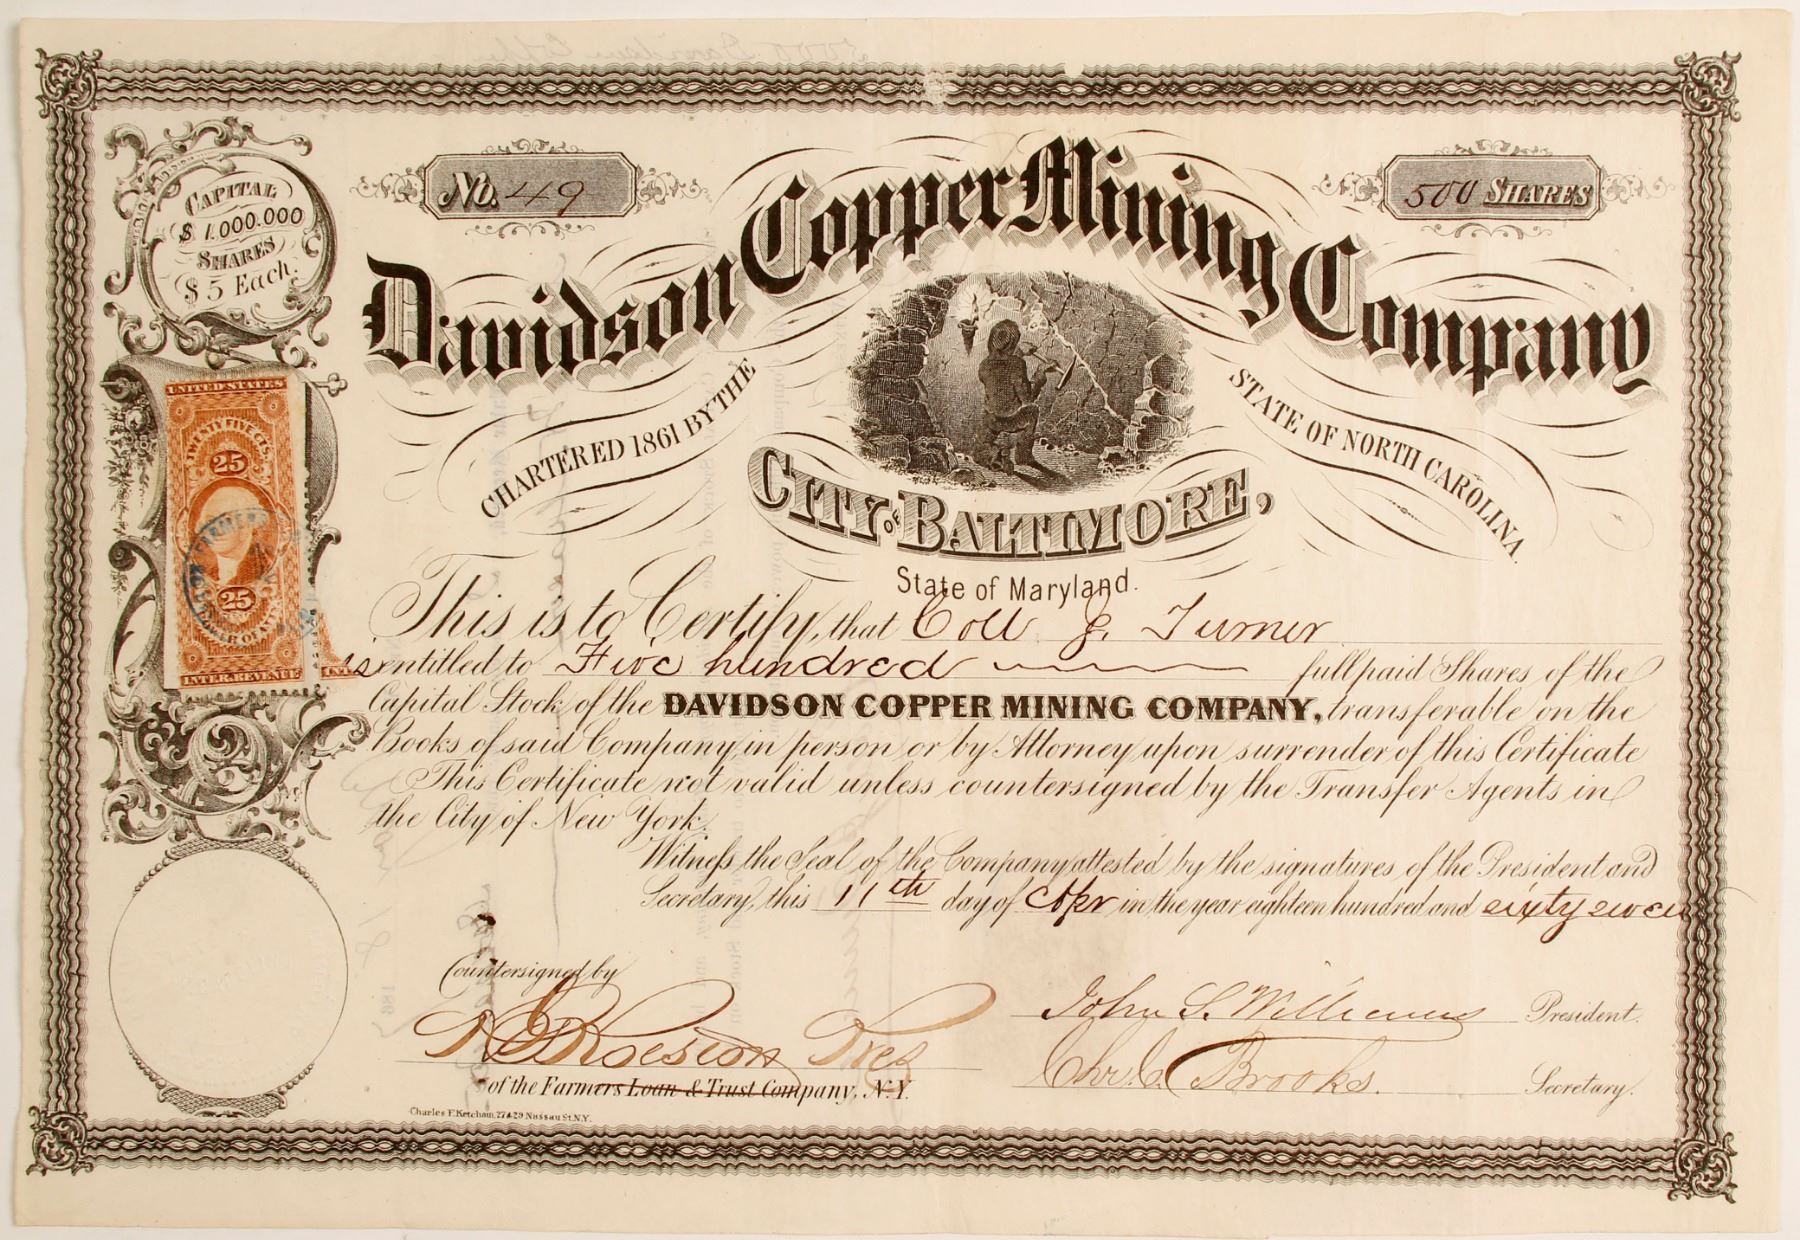 No. 49
500 SHARES
CAPITAL
$ 1.000.000
SHARES
$ 5 Each.
Davidson Copper Mining Company
CHARTERED 1861 BY THE STATE OF NORTH CAROLINA.
CITY OF BALTIMORE,
State of Maryland.
UNITED STATES
TWENTY FIVE CTS.
25
25
INTER. REVENUE
This is to Certify, that Coll J. Turner
is entitled to Five hundred full paid Shares of the
Capital Stock of the DAVIDSON COPPER MINING COMPANY, transferable on the
Books of said Company in person or by Attorney upon surrender of this Certificate
This Certificate not valid unless countersigned by the Transfer Agents in
the City of New York.
Witness the Seal of the Company attested by the signatures of the President and
Secretary, this 11th day of Apr in the year eighteen hundred and sixty seven
Countersigned by
John S. Williams President.
Chr. C. Brooks. Secretary.
of the Farmers Loan & Trust Company, N.Y.
Charles F. Ketcham, 27 & 29 Nassau St. N.Y.